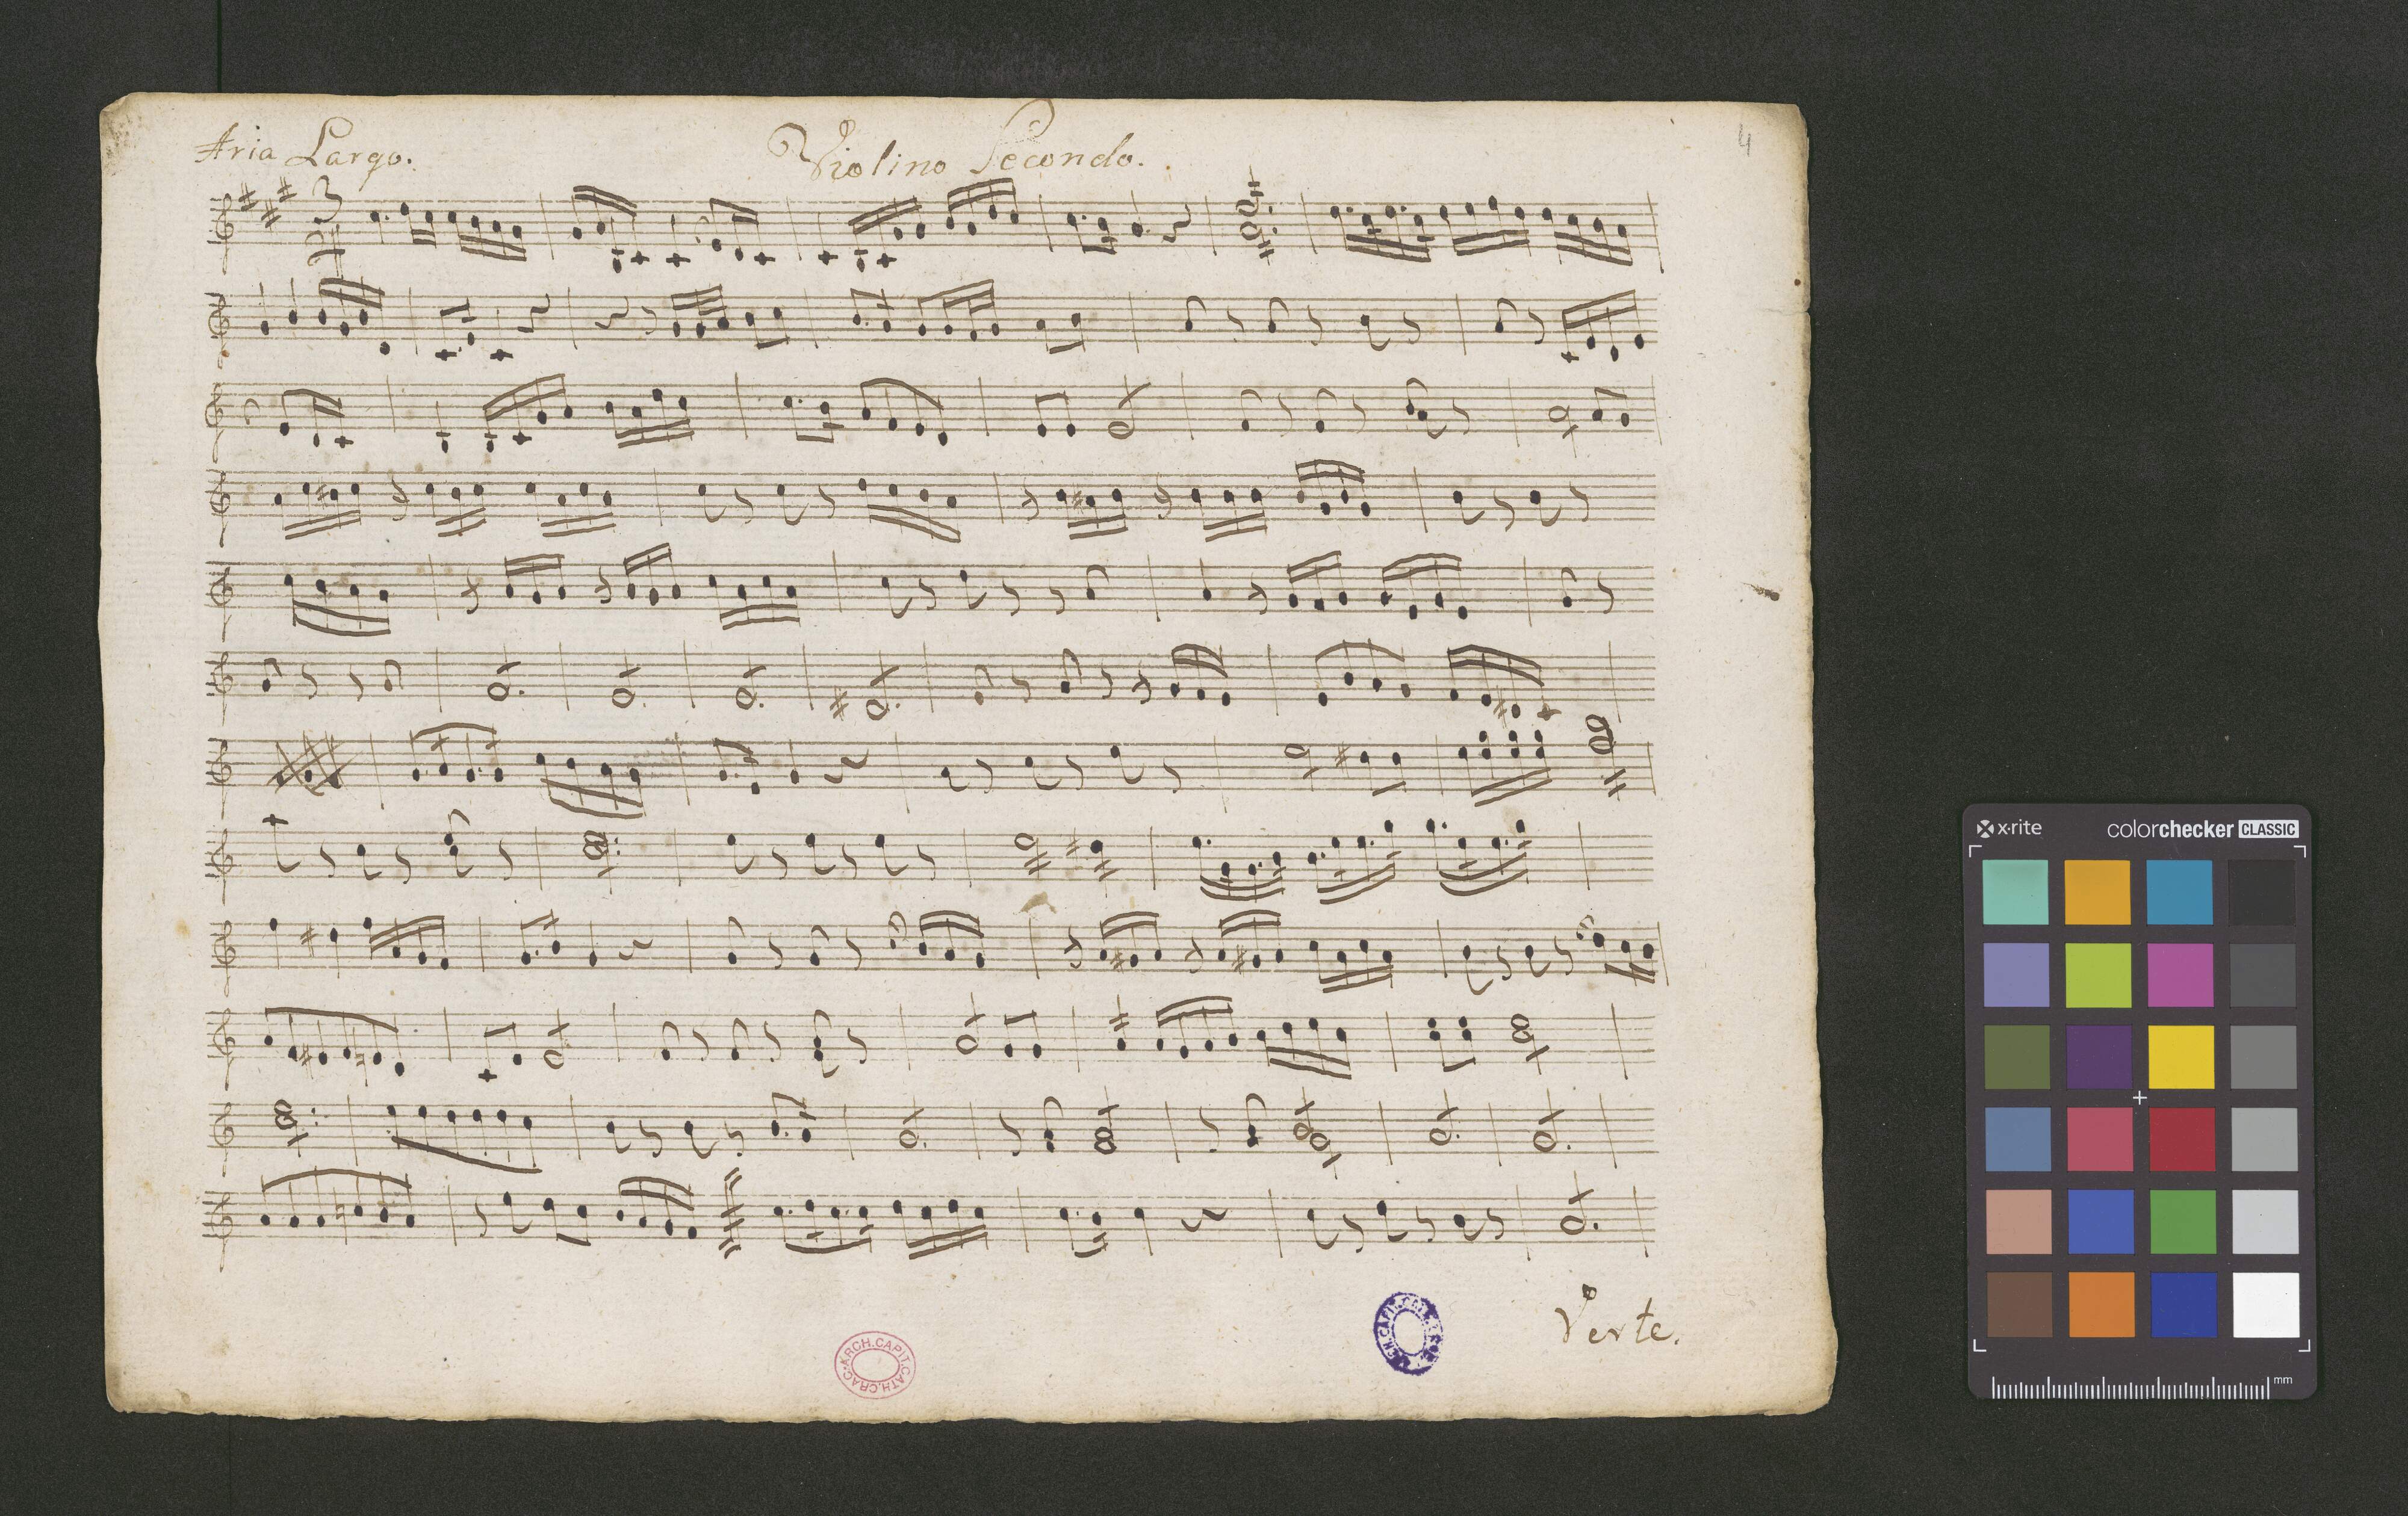 Aria Largo.
Violino Secondo.
4
3
x·rite
colorchecker CLASSIC
mm
Verte.
ARCH.CAPIT.CATH.CRAC.